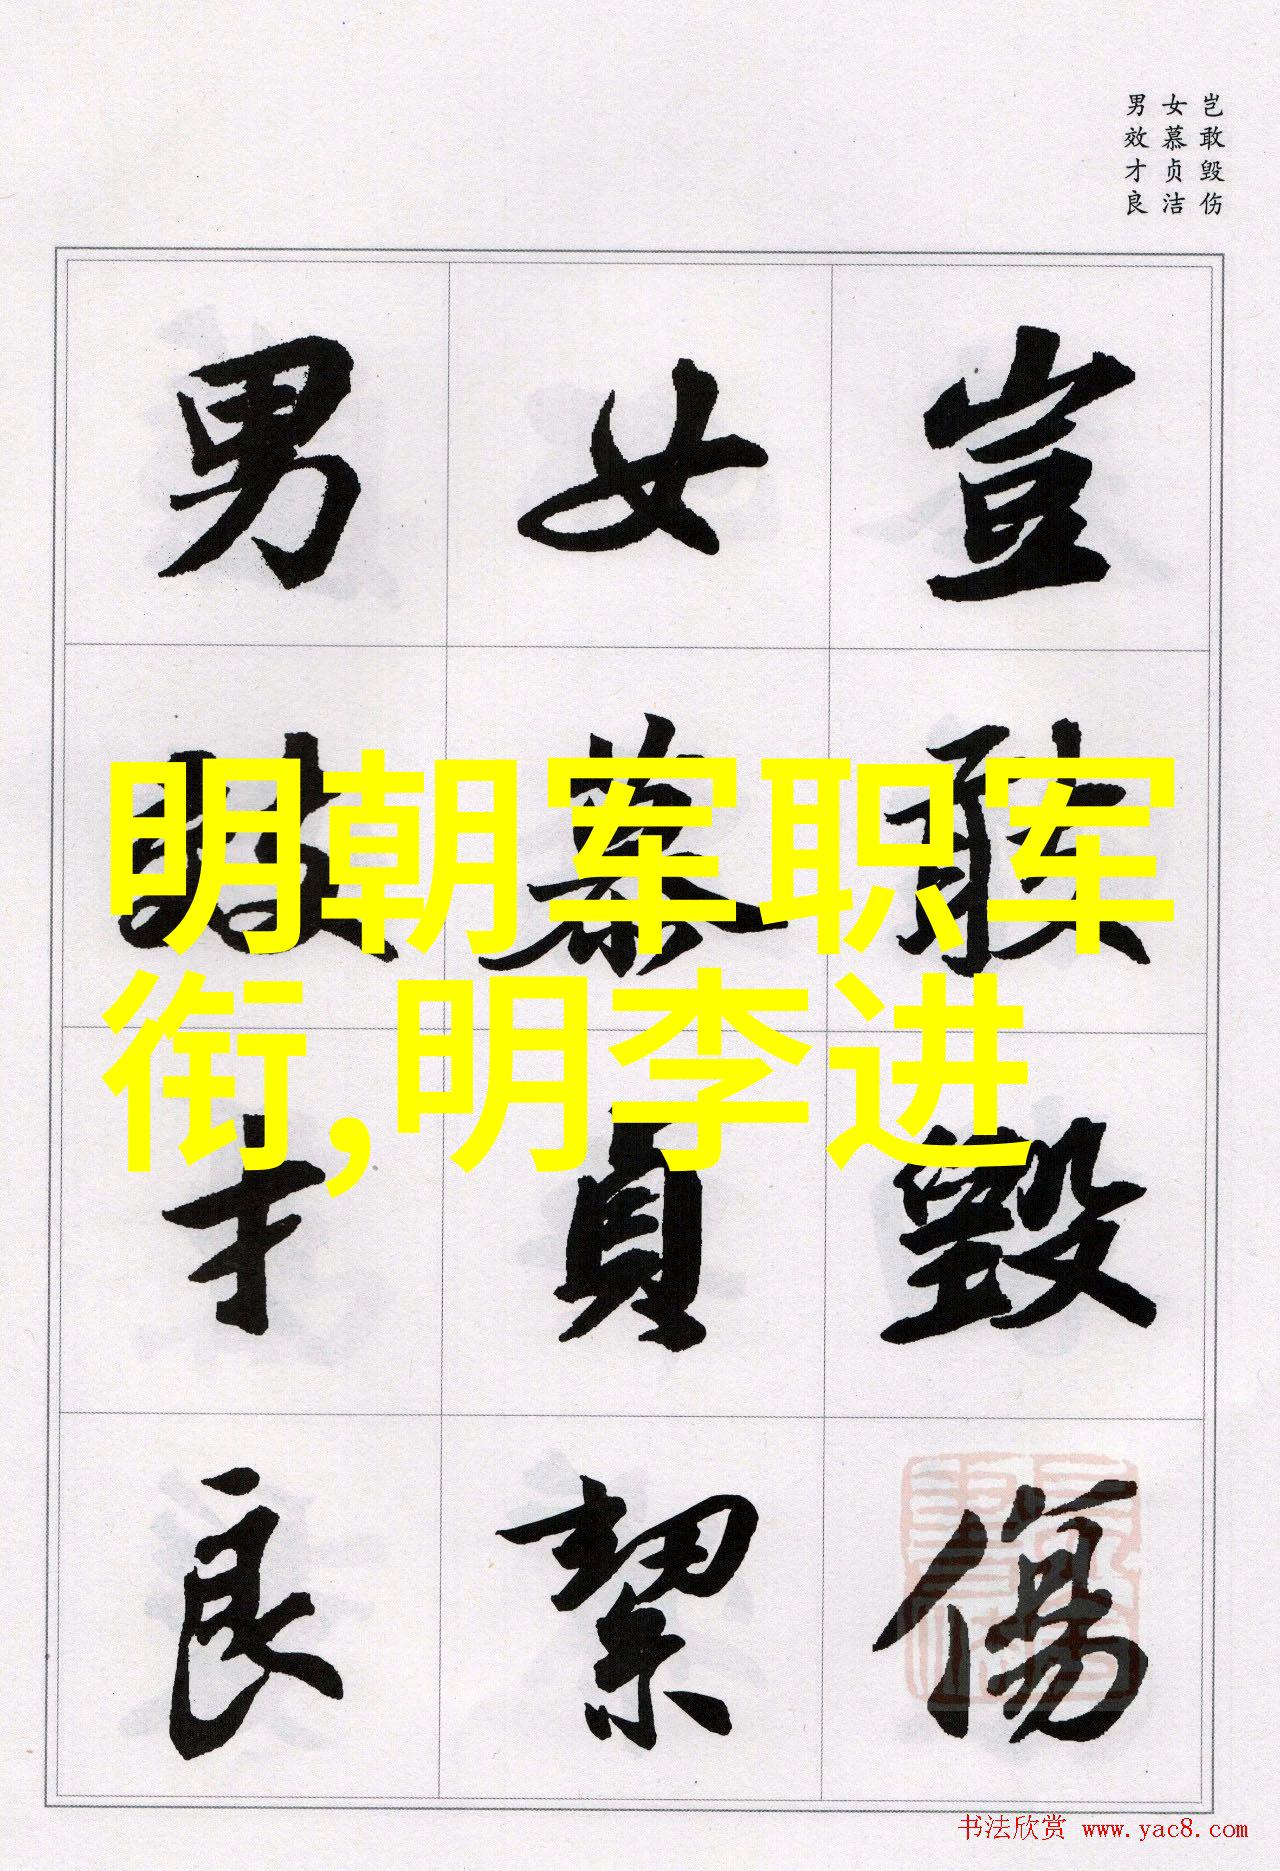 岂敢毁伤
女慕贞洁
男效才良
豈敢毀傷
女慕貞絜
男效才良
明朝军职军
衔,明李进
书法欣赏 www.yac8.com